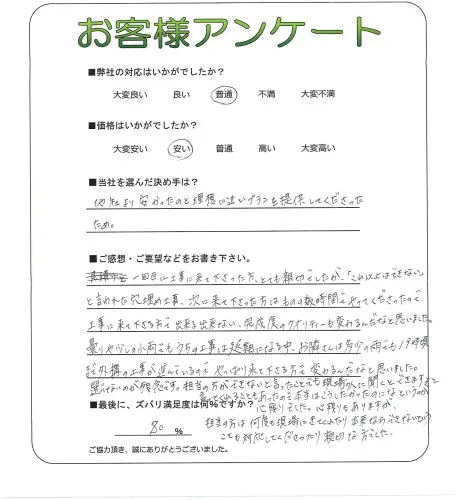 お客様アンケート
■弊社の対応はいかがでしたか?
大変良い 良い 普通 不満 大変不満
■価格はいかがでしたか?
大変安い 安い 普通 高い 大変高い
■当社を選んだ決め手は?
他社より安かったのと理想に近いプランを提供してくださった
ため。
■ご感想・ご要望などをお書き下さい。
一回目に工事に来て下さった方、とても親切でしたが、「これ以上はできない」
と言われた穴埋め工事、次に来て下さった方はものの数時間でやってくださったので
工事に来て下さる方で出来る出来ない、完成度のクオリティーも変わるんだなと思いました。
曇りや少しの小雨でもうちの工事は延期になる中、お隣さんは多少の雨でも19時頃
まで外構の工事が進んでいるので やっぱり来て下さる方で変わるんだなと思いました。
のが残念です。担当の方ができないと言ったことでも現場の人に聞くとできますよと
言ってくれることもあったので本当はこうしたかったのになというのが
心残りでした。心残りもありますが、
■最後に、ズバリ満足度は何%ですか?
担当の方は何度も現場にきてくれたり出来る
80 %
ことも対応してくださったり親切な方でした。
ご協力頂き、誠にありがとうございました。